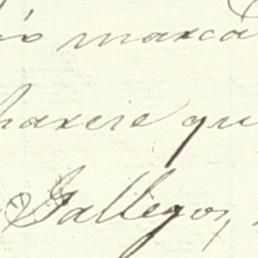 io marca
harere qu
Gallegos,